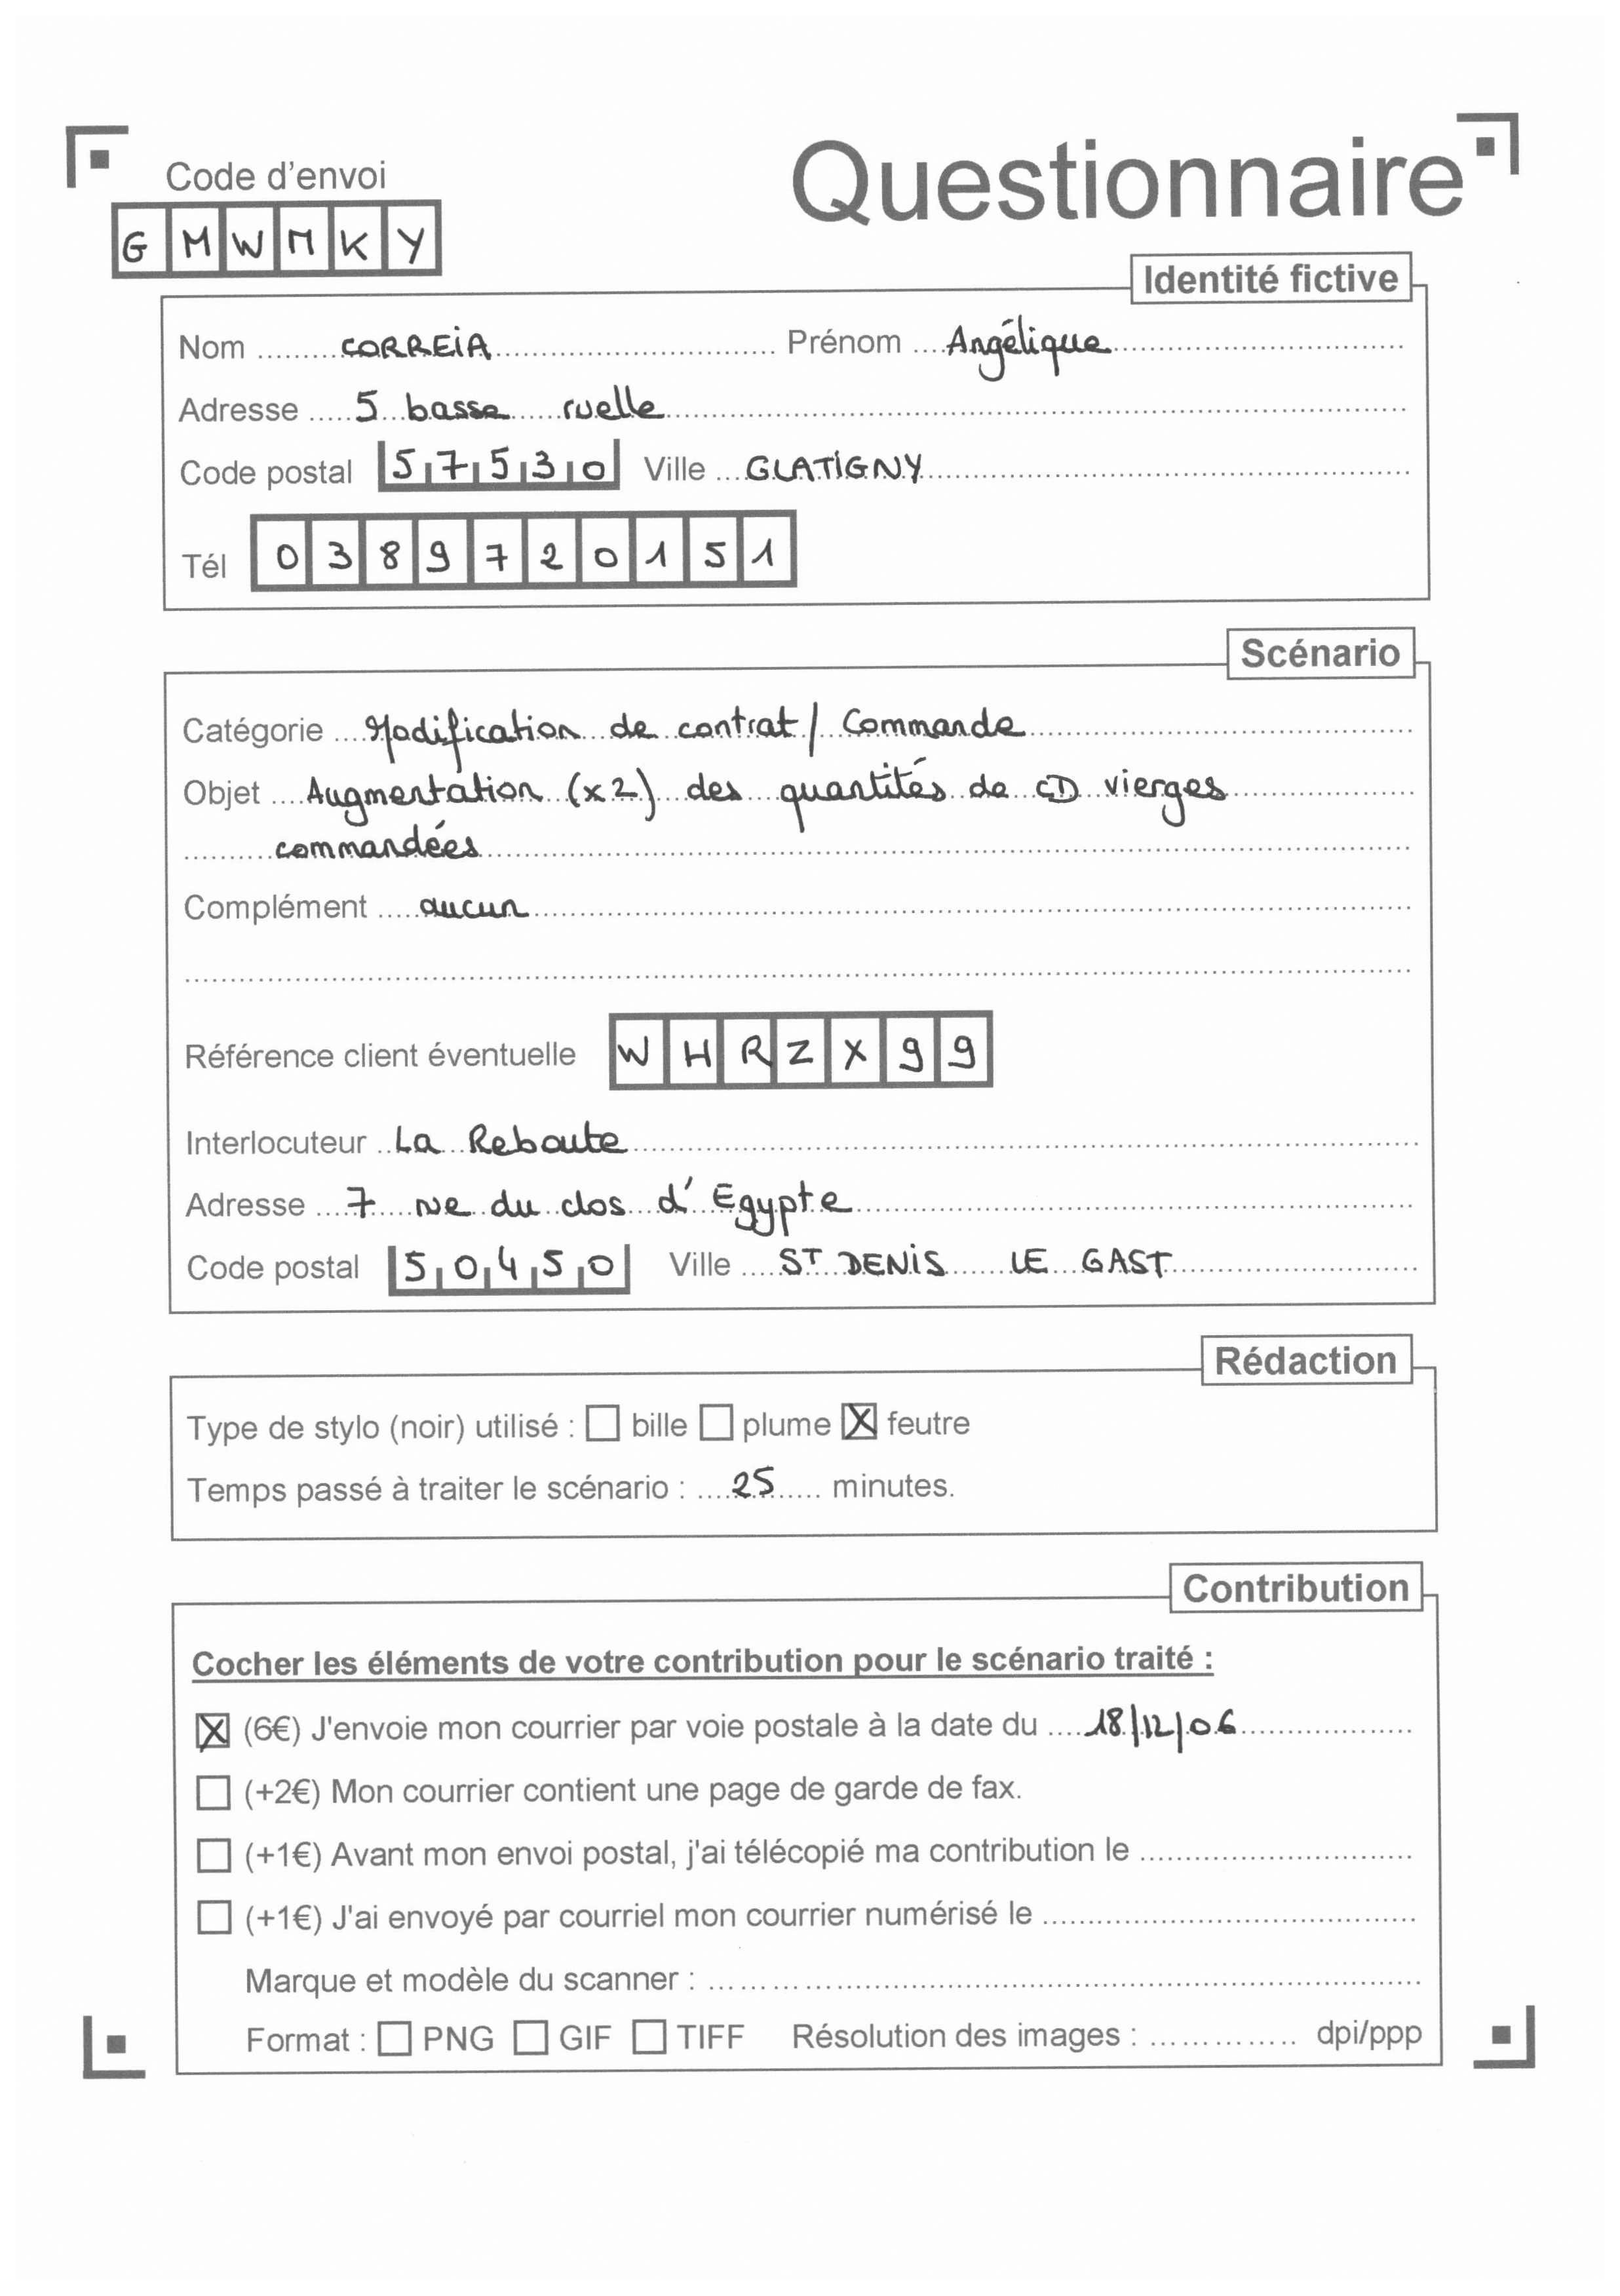 Questionnaire
Code d'envoi
G M W M K Y
Identité fictive
Nom ......... CORREIA ......... Prénom .... Angélique .........
Adresse ..... 5 basse ruelle .........
Code postal 5 7 5 3 0 Ville ... GLATIGNY .........
Tél 0 3 8 9 7 2 0 1 5 1
Scénario
Catégorie .... Modification de contrat / Commande .........
Objet .... Augmentation (x2) des quantités de CD vierges
commandées
Complément ..... aucun .........
Référence client éventuelle W H R Z X 9 9
Interlocuteur .. La Reboute .........
Adresse ... 7 rue du clos d'Egypte .........
Code postal 5 0 4 5 0 Ville .... ST DENIS LE GAST .........
Rédaction
Type de stylo (noir) utilisé : ☐ bille ☐ plume ☒ feutre
Temps passé à traiter le scénario : .... 25 ...... minutes.
Contribution
Cocher les éléments de votre contribution pour le scénario traité :
☒ (6€) J'envoie mon courrier par voie postale à la date du .... 18/12/06 .........
☐ (+2€) Mon courrier contient une page de garde de fax.
☐ (+1€) Avant mon envoi postal, j'ai télécopié ma contribution le .........
☐ (+1€) J'ai envoyé par courriel mon courrier numérisé le .........
Marque et modèle du scanner : .........
Format : ☐ PNG ☐ GIF ☐ TIFF Résolution des images : .............. dpi/ppp